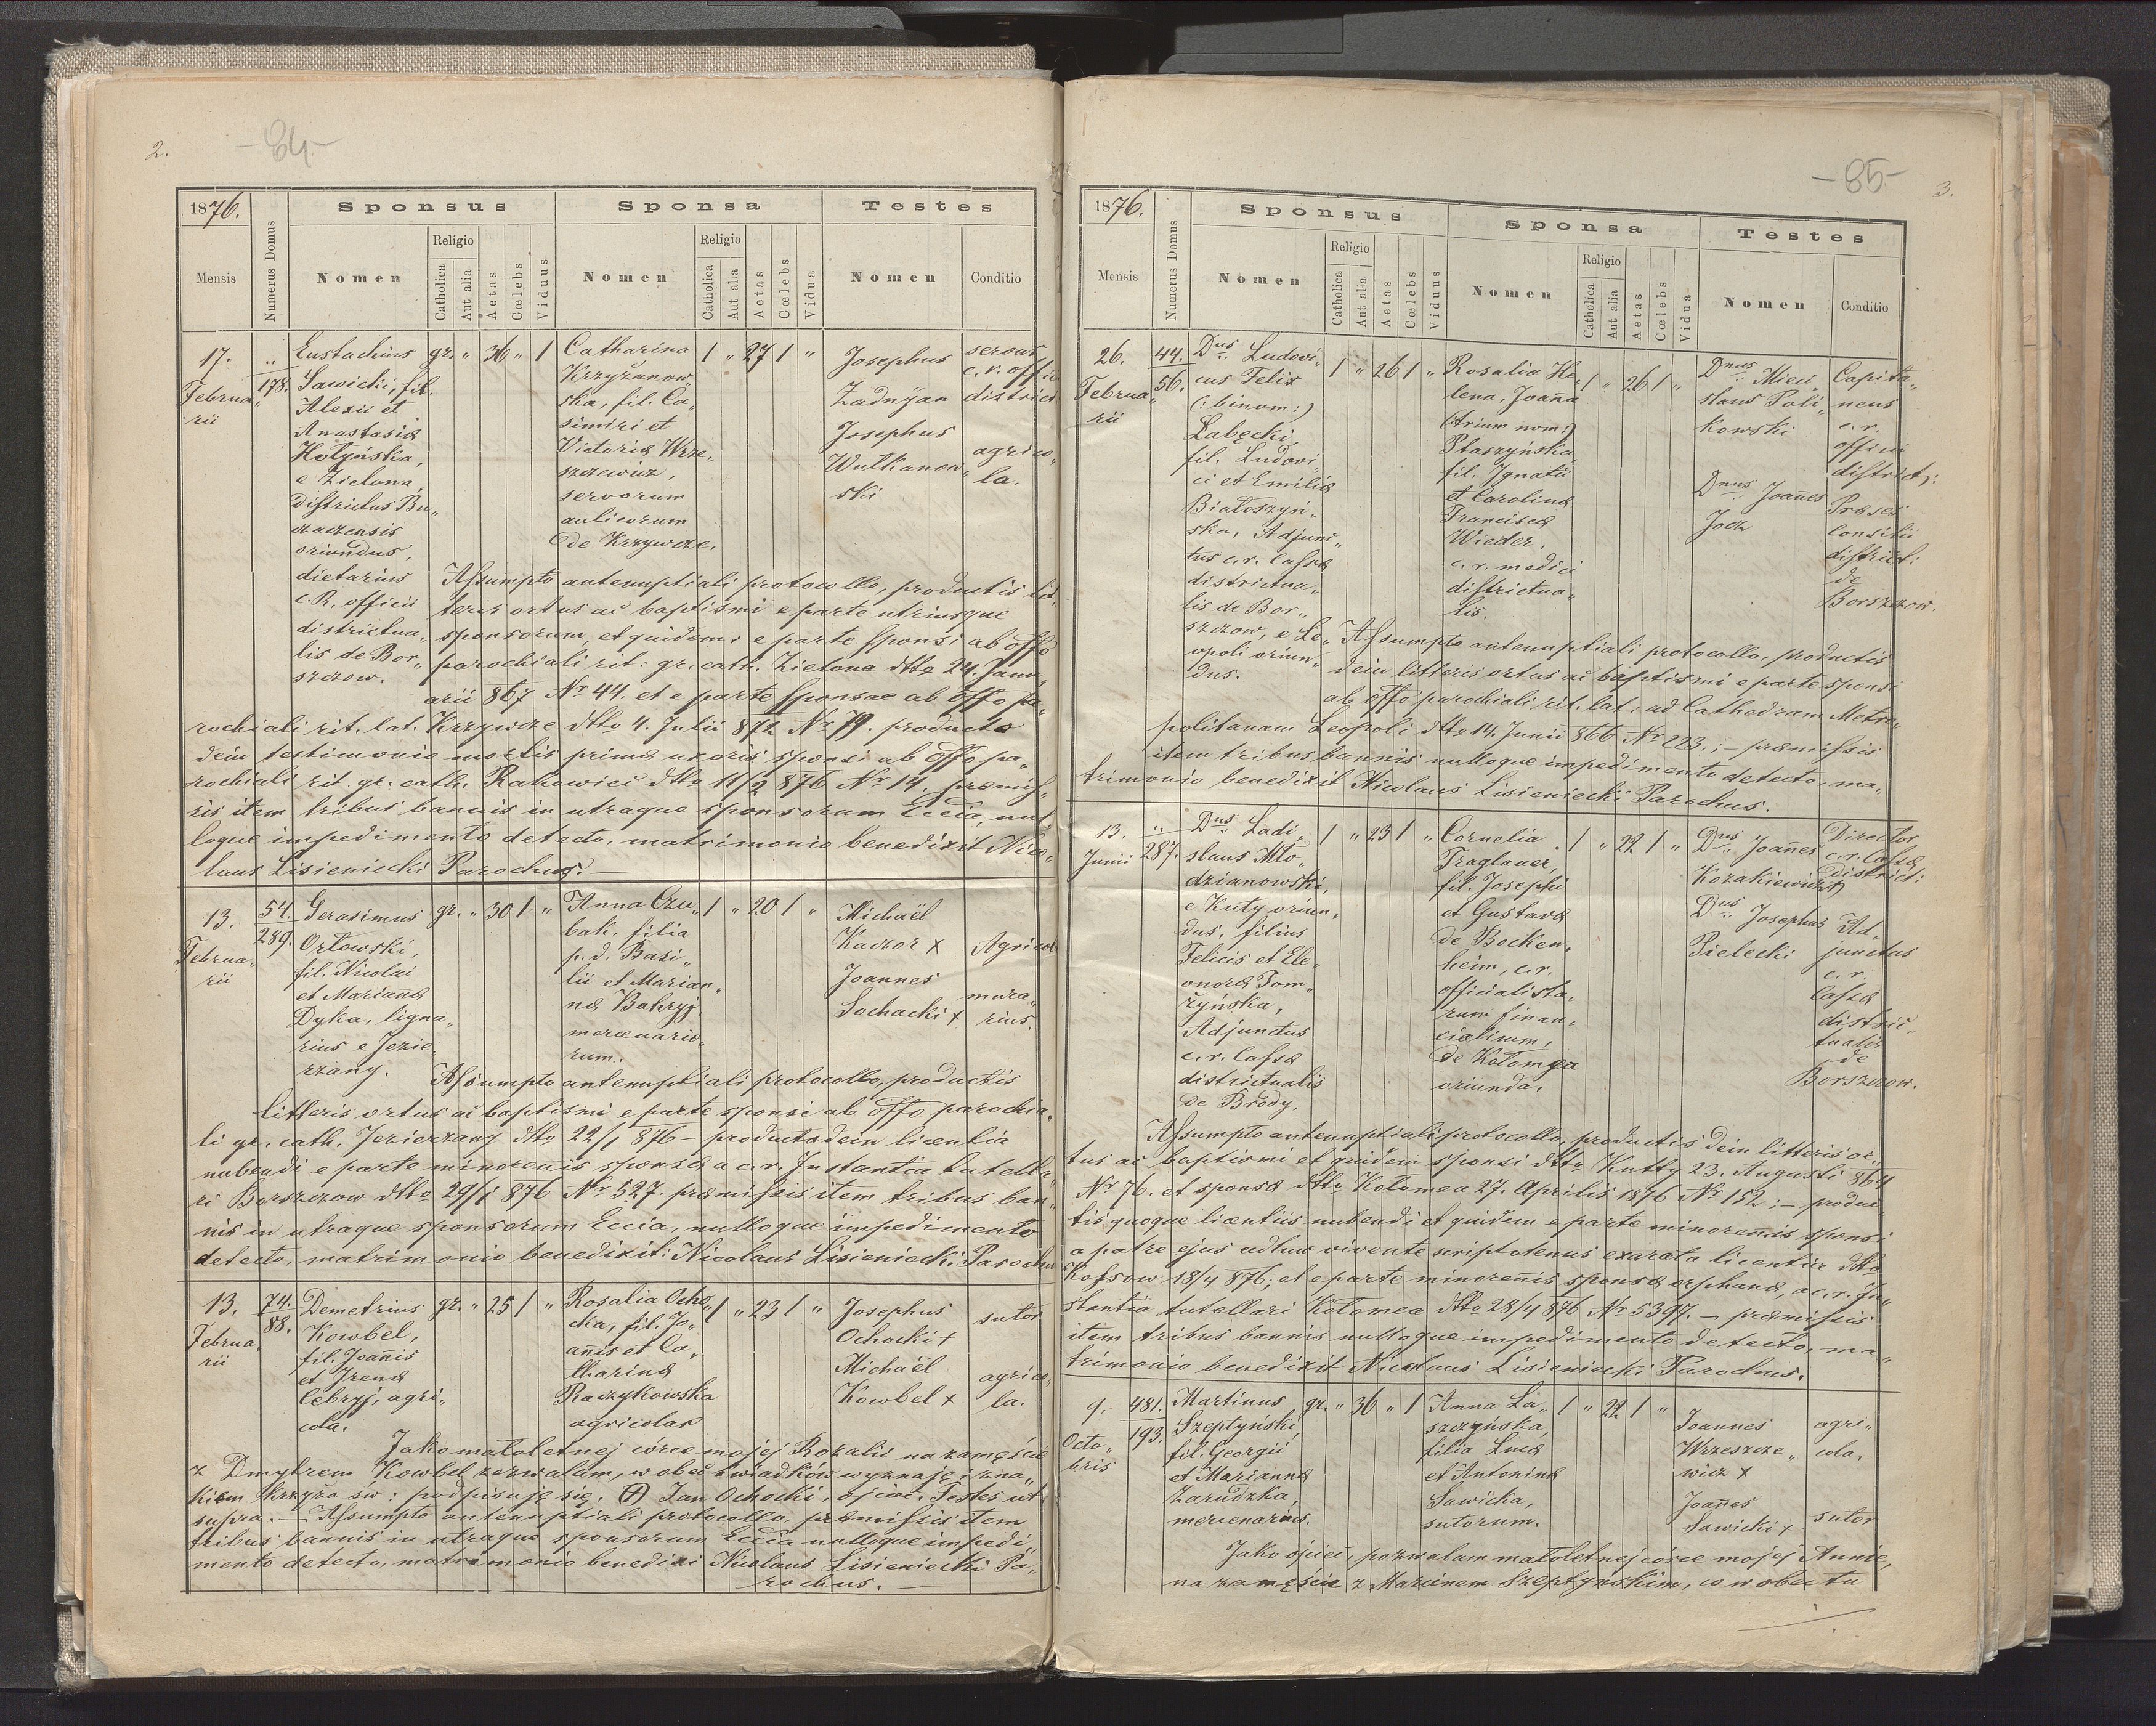 2.
-84-
1876.
Sponsus
Sponsa
Testes
Mensis
Numerus Domus
Nomen
Religio
Catholica
Aut alia
Aetas
Cœlebs
Viduus
Nomen
Religio
Catholica
Aut alia
Aetas
Cœlebs
Vidua
Nomen
Conditio
17.
Februa„
rii
„
178.
Eustachius
Sawicki, fil.
Alexii et
Anastasiæ
Hołyńska,
e Zielona,
districtus Bu„
czaczensis
oriundus,
dietarius
c.R. officii
districtua„
lis de Bor„
szczow.
gr. „ 36 „ 1
Catharina
Krzyżanow„
ska, fil. Ca„
simiri et
Victoriæ Wrze„
szczewicz,
servorum
aulicorum
de Krzywcze.
1 „ 27 1 „
Josephus
Zadnyan
Josephus
Wutkanow„
ski
servus
c.r. offic
district
agrico„
la.
Assumpto antenuptiali protocollo, productis lit„
teris ortus ac baptismi e parte utriusque
sponsorum, et quidem: e parte sponsi ab offo
parochiali rit: gr. cath. Zielona dtto 24. Janu„
arii 867 Nr 44. et e parte sponsae ab offo pa„
rochiali rit. lat. Krzywcze dtto 4. Julii 872 Nr 79. producto
dein testimonio mortis primæ uxoris sponsi ab offo pa„
rochiali rit. gr. cath. Rakowiec dtto 11/2 876 Nr 14. præmis„
sis item tribus bannis in utraque sponsorum Eccia, nul„
loque impedimento detecto, matrimonio benedixit Nico„
laus Lisieniecki Parochus.
13.
Februa„
rii
54.
289.
Gerasimus
Orłowski,
fil. Nicolai
et Mariannæ
Dyka, ligna„
rius e Jezie„
rzany.
gr. „ 30 1 „
Anna Czu„
bak, filia
p.d. Basi„
lii et Marian„
næ Bahryj
mercenario„
rum.
1 „ 20 1 „
Michaël
Kaczor x
Joannes
Sochacki x
Agricol
mura„
rius.
Assumpto antenuptiali protocollo, productis
litteris ortus ac baptismi e parte sponsi ab offo parochia„
li gr. cath. Jezierzany dtto 22/1 876 – producta dein licentia
nubendi e parte minorennis sponsæ a c.r. Instantia tutella„
ri Borszczow dtto 29/1 876 Nr 527. præmissis item tribus ban„
nis in utraque sponsorum Eccia, nulloque impedimento
detecto, matrimonio benedixit: Nicolaus Lisieniecki Parochus
13.
Februa„
rii
74.
88.
Demetrius
Kowbel,
fil. Joañis
et Irenæ
Cebryj, agri„
cola.
gr. „ 25 1 „
Rosalia Ocho„
cka, fil. Jo„
añis et Ca„
tharinæ
Raczykowska
agricolar
1 „ 23 1 „
Josephus
Ochocki +
Michaël
Kowbel x
sutor
agrico„
la.
Jako małoletnej córce mojej Rozalii na zamęście
z Dmytrem Kowbel zezwalam, w obec świadków wyznaję i zna„
kiem krzyża św: podpisuję się. (+) Jan Ochocki, ojciec. Testes ut
supra. – Assumpto antenuptiali protocollo, præmissis item
tribus bannis in utraque sponsorum Eccia nulloque impedi
mento detecto, matrimonio benedixi Nicolaus Lisieniecki Pa„
rochus.
-85-
3.
1876.
Sponsus
Sponsa
Testes
Mensis
Numerus Domus
Nomen
Religio
Catholica
Aut alia
Aetas
Cœlebs
Viduus
Nomen
Religio
Catholica
Aut alia
Aetas
Cœlebs
Vidua
Nomen
Conditio
26.
Februa„
rii
44.
56.
Dnus Ludovi„
cus Felix
(: binom:)
Łabęcki,
fil. Ludovi„
ci et Emiliæ
Białoszyń„
ska, Adjunc„
tus c.r. Cassæ
districtua„
lis de Bor„
szczow, e Le„
opoli oriun„
dus.
1 „ 26 1 „
Rosalia He„
lena, Joañna
(trium nom:)
Ptaszyńska,
fil. Ignatii
et Carolinæ
Franciscæ
Wieder,
c.r. medici
districtua„
lis.
1 „ 26 1 „
Dnus Mieci„
slaus Poli„
kowski
Dnus Joañes
Jocz
Capita„
neus
c.r.
officii
district:
Præses
Consilii
district:
de
Borszczow.
Assumpto antenuptiali protocollo, productis
dein litteris ortus ac baptismi e parte sponsi
ab offo parochiali rit. lat: ad Cathedram Metro„
politanam Leopoli dtto 14. Junii 866 Nr 223.; – præmissis
item tribus bannis nulloque impedimento detecto ma„
trimonio benedixit Nicolaus Lisieniecki Parochus.
13.
Junii
„
287.
Dnus Ladi„
slaus Mło„
dzianowski,
e Kuty oriun„
dus, filius
Felicis et Ele„
onoræ Tom„
żyńska,
Adjunctus
c.r. Cassæ
districtualis
de Brody.
1 „ 23 1 „
Cornelia
Traglauer,
fil. Josephi
et Gustavæ
de Bocken„
heim, c.r.
officialista„
rum finan„
cialium,
de Kołomea
oriunda.
1 „ 22 1 „
Dnus Joañes
Kozakiewicz
Dnus Josephus
Pielecki
Director
c.r. Cassæ
district:
Ad„
junctus
c.r.
Cassæ
distric„
tualis
de
Borszczow.
Assumpto antenuptiali protocollo, productis dein litteris or„
tus ac baptismi et quidem sponsi dtto Kutty 23. Augusti 864
Nr 76. et sponsæ dtto Kołomea 27. Aprilis 1876 Nr 152; – produc
tis quoque licentiis nubendi et quidem e parte minorennis sponsi
a patre ejus adhuc vivente scriptotenus exarata licentia dtto
Kossow 18/4 876; et e parte minoreñis sponsæ orphanæ, a c.r. In„
stantia tutellari Kołomea dtto 28/4 876 Nr 5397. – præmissis
item tribus bannis nulloque impedimento detecto, ma„
trimonio benedixit Nicolaus Lisieniecki Parochus.
9.
Octo„
bris
481.
193.
Martinus
Szeptyński,
fil. Georgii
et Mariannæ
Zarudzka,
mercenarius.
gr. „ 36 „ 1
Anna La„
szczyńska,
filia Lucæ
et Antoninæ
Sawicka,
sutorum.
1 „ 22 1 „
Joannes
Wrzeszcze„
wicz x
Joañes
Sawicki x
agri„
cola,
sutor
Jako ojciec, pozwalam małoletnej córce mojej Annie,
na zamęście z Marcinem Szeptyńskim, co w obec tu